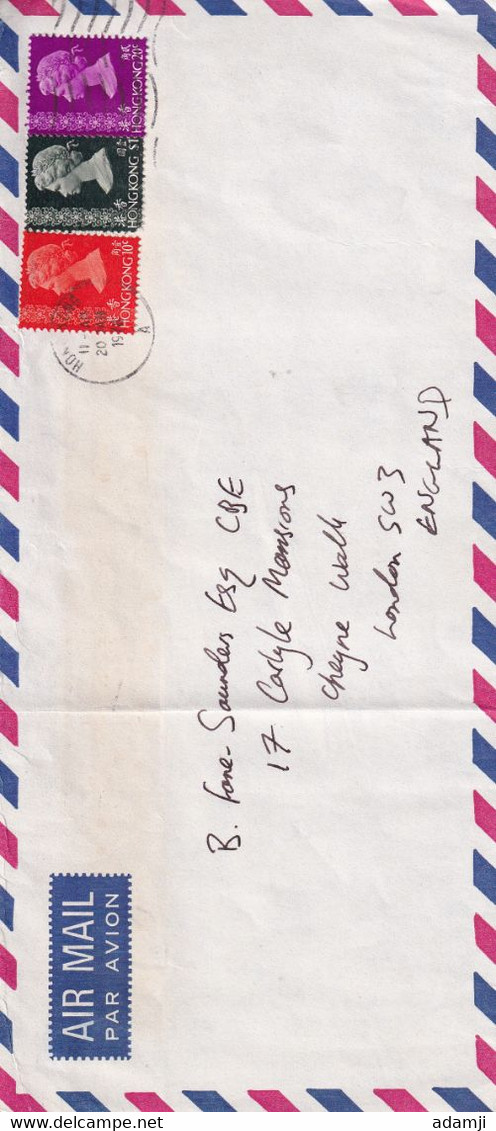 HONG KONG 20c
香港
貳角
HONG KONG $1
香港
壹圓
HONG KONG 10c
香港
壹角
11 -
20
19
A
B. Fane-Saunders Esq CBE
17 Carlyle Mansions
Cheyne Walk
London SW3
ENGLAND
AIR MAIL
PAR AVION
adamji